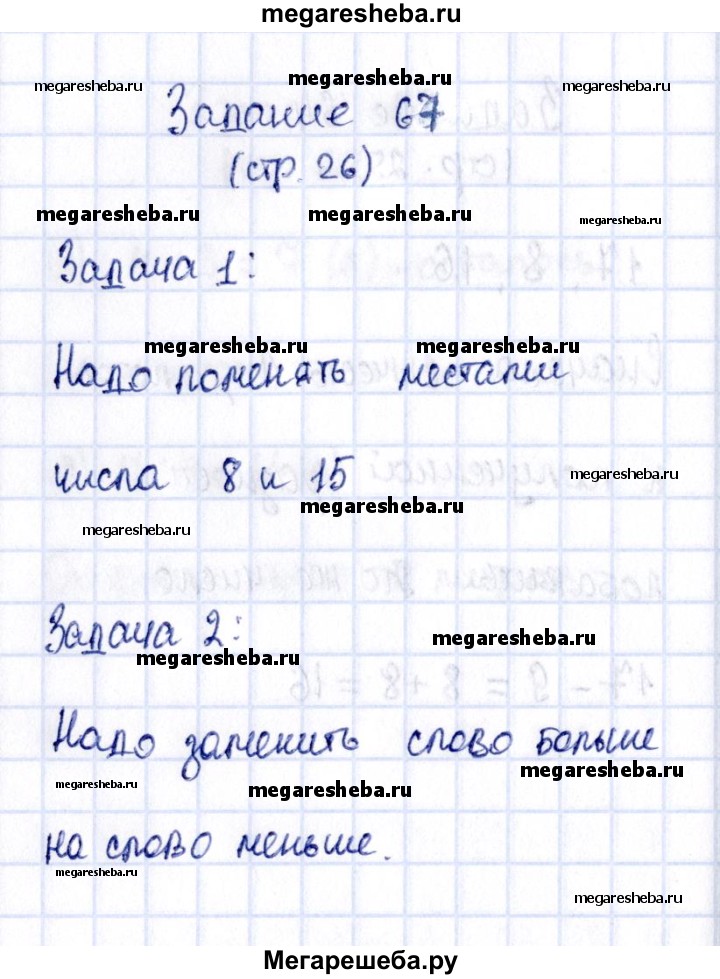 megaresheba.ru
megaresheba.ru
megaresheba.ru
megaresheba.ru
Задание 67
(стр. 26)
megaresheba.ru
megaresheba.ru
megaresheba.ru
Задача 1:
megaresheba.ru
megaresheba.ru
Надо поменять местами
числа 8 и 15
megaresheba.ru
megaresheba.ru
megaresheba.ru
Задача 2:
megaresheba.ru
megaresheba.ru
Надо заменить слово больше
megaresheba.ru
megaresheba.ru
megaresheba.ru
на слово меньше.
megaresheba.ru
megaresheba.ru
Мегарешеба.ру